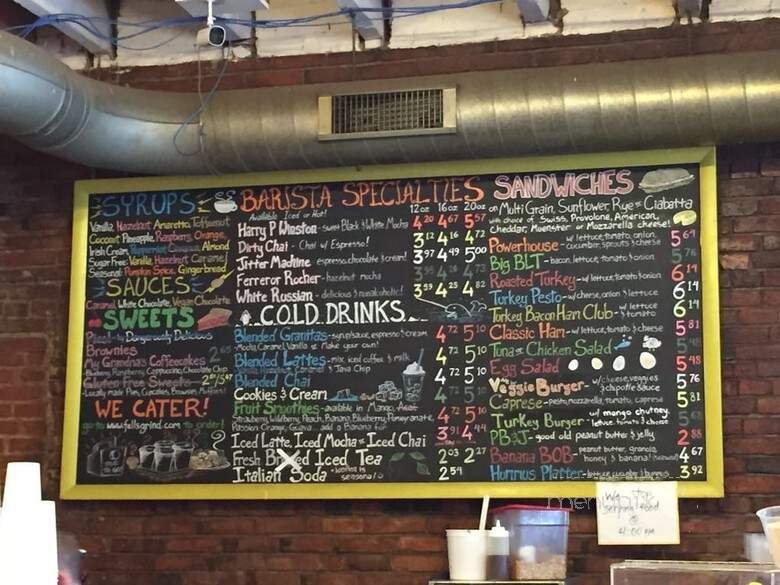 SYRUPS
Vanilla, Hazelnut, Amaretto,
Coconut, Pineapple, Raspberry, Orange,
Irish Cream, Almond
Sugar Free: Vanilla, Hazelnut, Caramel
Seasonal: Pumpkin Spice, Gingerbread
SAUCES
Caramel, White Chocolate, Vegan Chocolate
SWEETS
Dangerously Delicious
Brownies
My Grandma's Coffeecakes
Blueberry, Raspberry, Cappuccino, Chocolate Chip
Gluten Free Sweets
WE CATER!
go to www.fellsgrind.com to order!
BARISTA SPECIALTIES 12oz 16oz 20oz
Available Iced or Hot!
Harry P Winston - sweet Black & White Mocha 4 20 4 67 5 57
Dirty Chai - Chai w/ Espresso! 3 12 4 16 4 72
Jitter Machine espresso, chocolate & cream! 3 97 4 49 5 00
Ferreror Rocher - hazelnut mocha
White Russian - delicious & nonalcoholic! 3 59 4 25 4 82
COLD DRINKS
Blended Granitas - syrup/sauce, espresso & cream 4 72 5 10
Mocha, Caramel, Vanilla or Make your own!
Blended Lattes - mix, iced coffee & milk 4 72 5 10
& Java Chip
Blended Chai 4 72 5 10
Cookies & Cream
Fruit Smoothies - available in Mango, Acai 4 72 5 10
Strawberry, Wildberry, Peach, Banana, Blueberry, Pomegranate,
Passion Orange, Guava... add a Banana for
Iced Latte, Iced Mocha or Iced Chai 3 91 4 44
Fresh Brewed Iced Tea 2 03 2 27
Italian Soda 2 54
SANDWICHES
on Multi Grain, Sunflower, Rye or Ciabatta
with choice of Swiss, Provolone, American,
cheddar, Muenster or Mozzarella cheese!
Powerhouse - w/ lettuce, tomato, onion, cucumber, sprouts & cheese 5 69
Big BLT - bacon, lettuce, tomato & onion 5 76
Roasted Turkey - w/ lettuce, tomato & onion 6 14
Turkey Pesto - w/ cheese, onion & lettuce 6 14
Turkey Bacon Ham Club - w/ lettuce & tomato 6 14
Classic Ham - w/ lettuce, tomato & cheese 5 81
Tuna or Chicken Salad
Egg Salad 5 48
Veggie Burger - w/ cheese, veggies & chipotle sauce 5 76
Caprese - pesto, mozzarella, tomato, caprese 5 81
Turkey Burger - w/ mango chutney, lettuce, tomato & cheese
PB&J - good old peanut butter & jelly 2 88
Banana BOB - peanut butter, granola, honey & banana! 4 67
Hummus Platter - lettuce, cucumber & hummus 3 92
We
serving food
@
4:00 PM